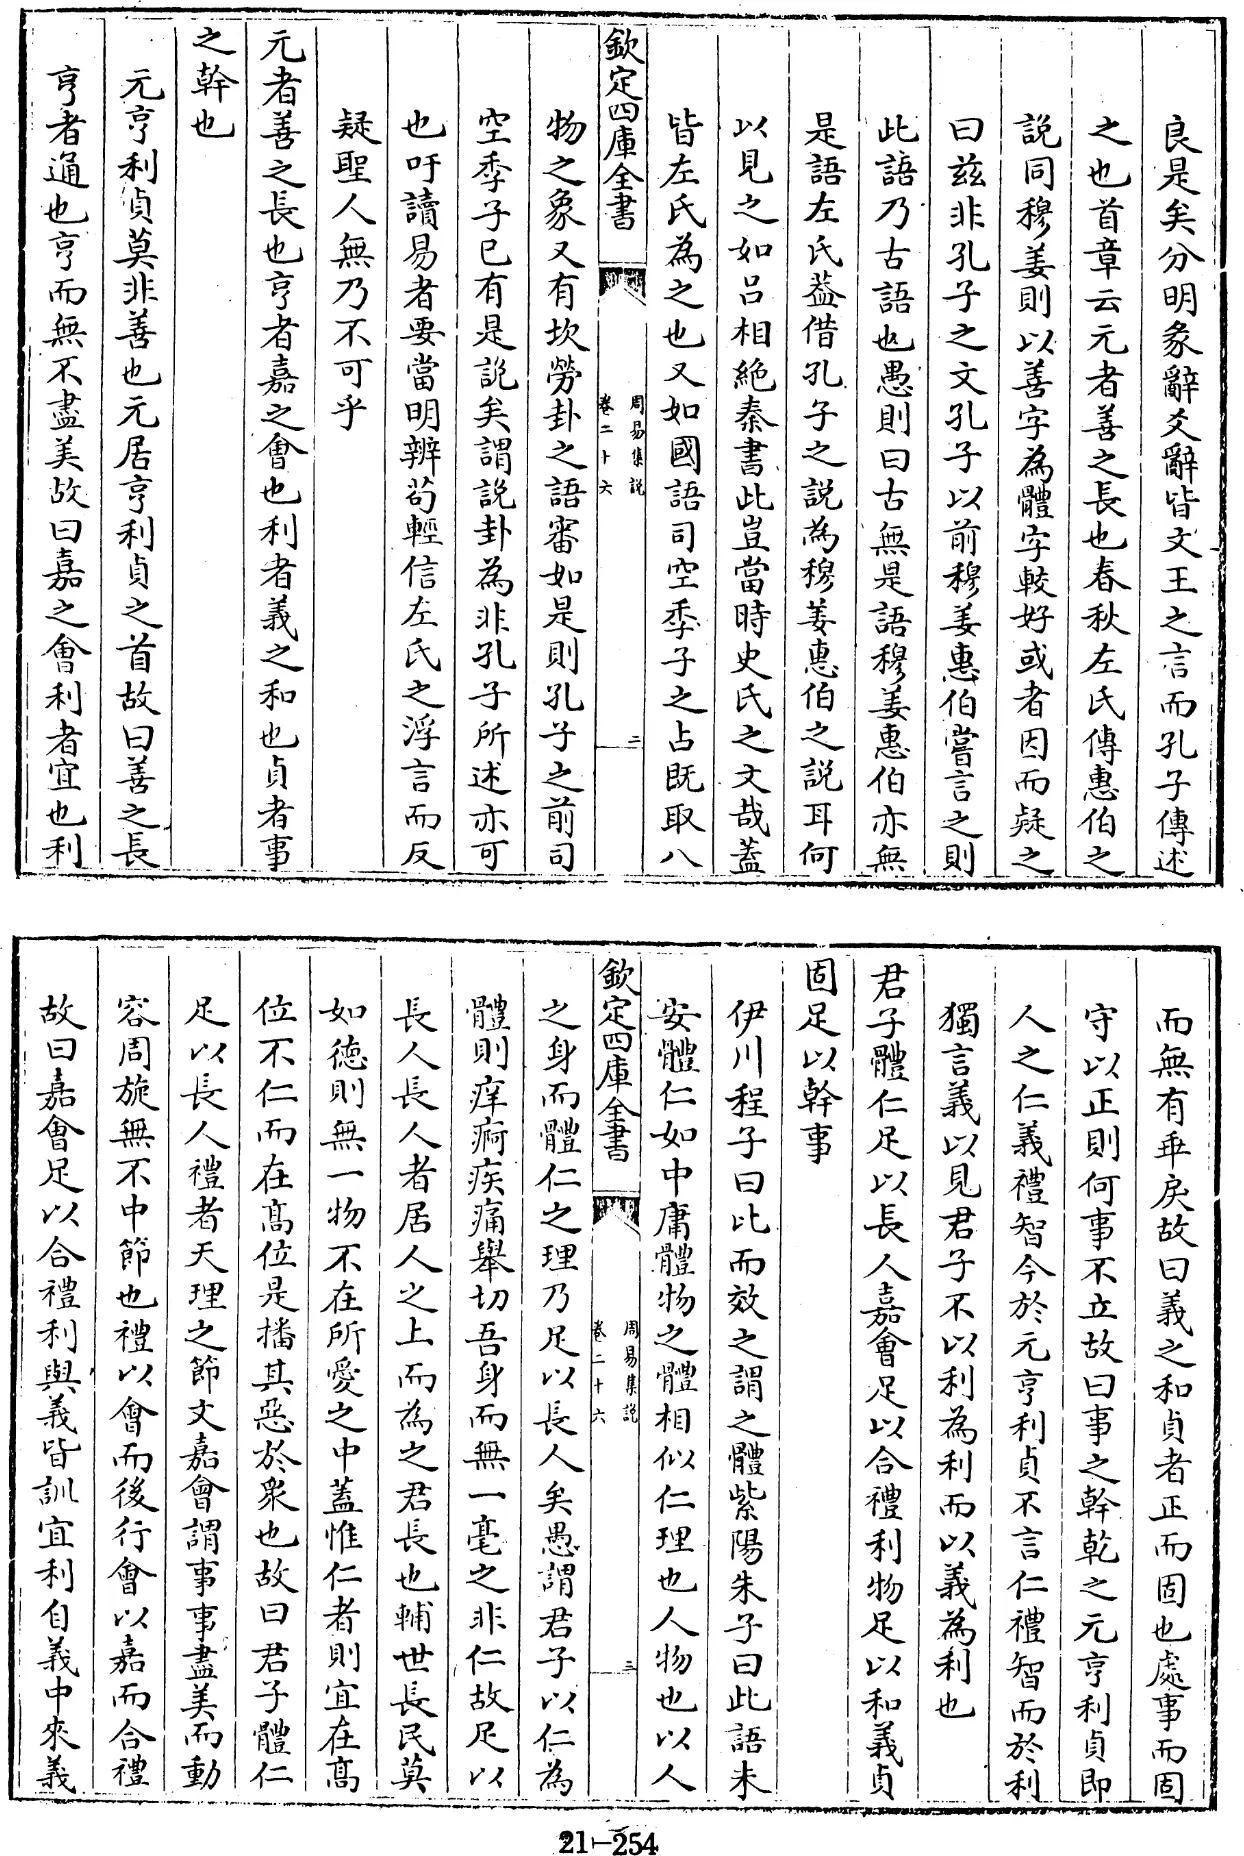 良是矣分明彖辭爻辭皆文王之言而孔子傳述
之也首章云元者善之長也春秋左氏傳惠伯之
說同穆姜則以善字為體字較好或者因而疑之
曰兹非孔子之文孔子以前穆姜惠伯嘗言之則
此語乃古語也愚則曰古無是語穆姜惠伯亦無
是語左氏葢借孔子之說為穆姜惠伯之說耳何
以見之如吕相絶秦書此豈當時史氏之文哉蓋
皆左氏為之也又如國語司空季子之占既取八
欽定四庫全書
周易集說
卷二十六
三
物之象又有坎勞卦之語審如是則孔子之前司
空季子已有是說矣謂說卦為非孔子所述亦可
也吁讀易者要當明辨茍輕信左氏之浮言而反
疑聖人無乃不可乎
元者善之長也亨者嘉之會也利者義之和也貞者事
之幹也
元亨利貞莫非善也元居亨利貞之首故曰善之長
亨者通也亨而無不盡美故曰嘉之會利者宜也利
而無有乖戾故曰義之和貞者正而固也處事而固
守以正則何事不立故曰事之幹乾之元亨利貞即
人之仁義禮智今於元亨利貞不言仁禮智而於利
獨言義以見君子不以利為利而以義為利也
君子體仁足以長人嘉會足以合禮利物足以和義貞
固足以幹事
伊川程子曰比而效之謂之體紫陽朱子曰此語未
安體仁如中庸體物之體相似仁理也人物也以人
欽定四庫全書
周易集說
卷二十六
三
之身而體仁之理乃足以長人矣愚謂君子以仁為
體則痒痾疾痛舉切吾身而無一毫之非仁故足以
長人長人者居人之上而為之君長也輔世長民莫
如德則無一物不在所愛之中蓋惟仁者則宜在髙
位不仁而在髙位是播其惡於衆也故曰君子體仁
足以長人禮者天理之節文嘉會謂事事盡美而動
容周旋無不中節也禮以會而後行會以嘉而合禮
故曰嘉會足以合禮利與義皆訓宜利自義中來義
21-254